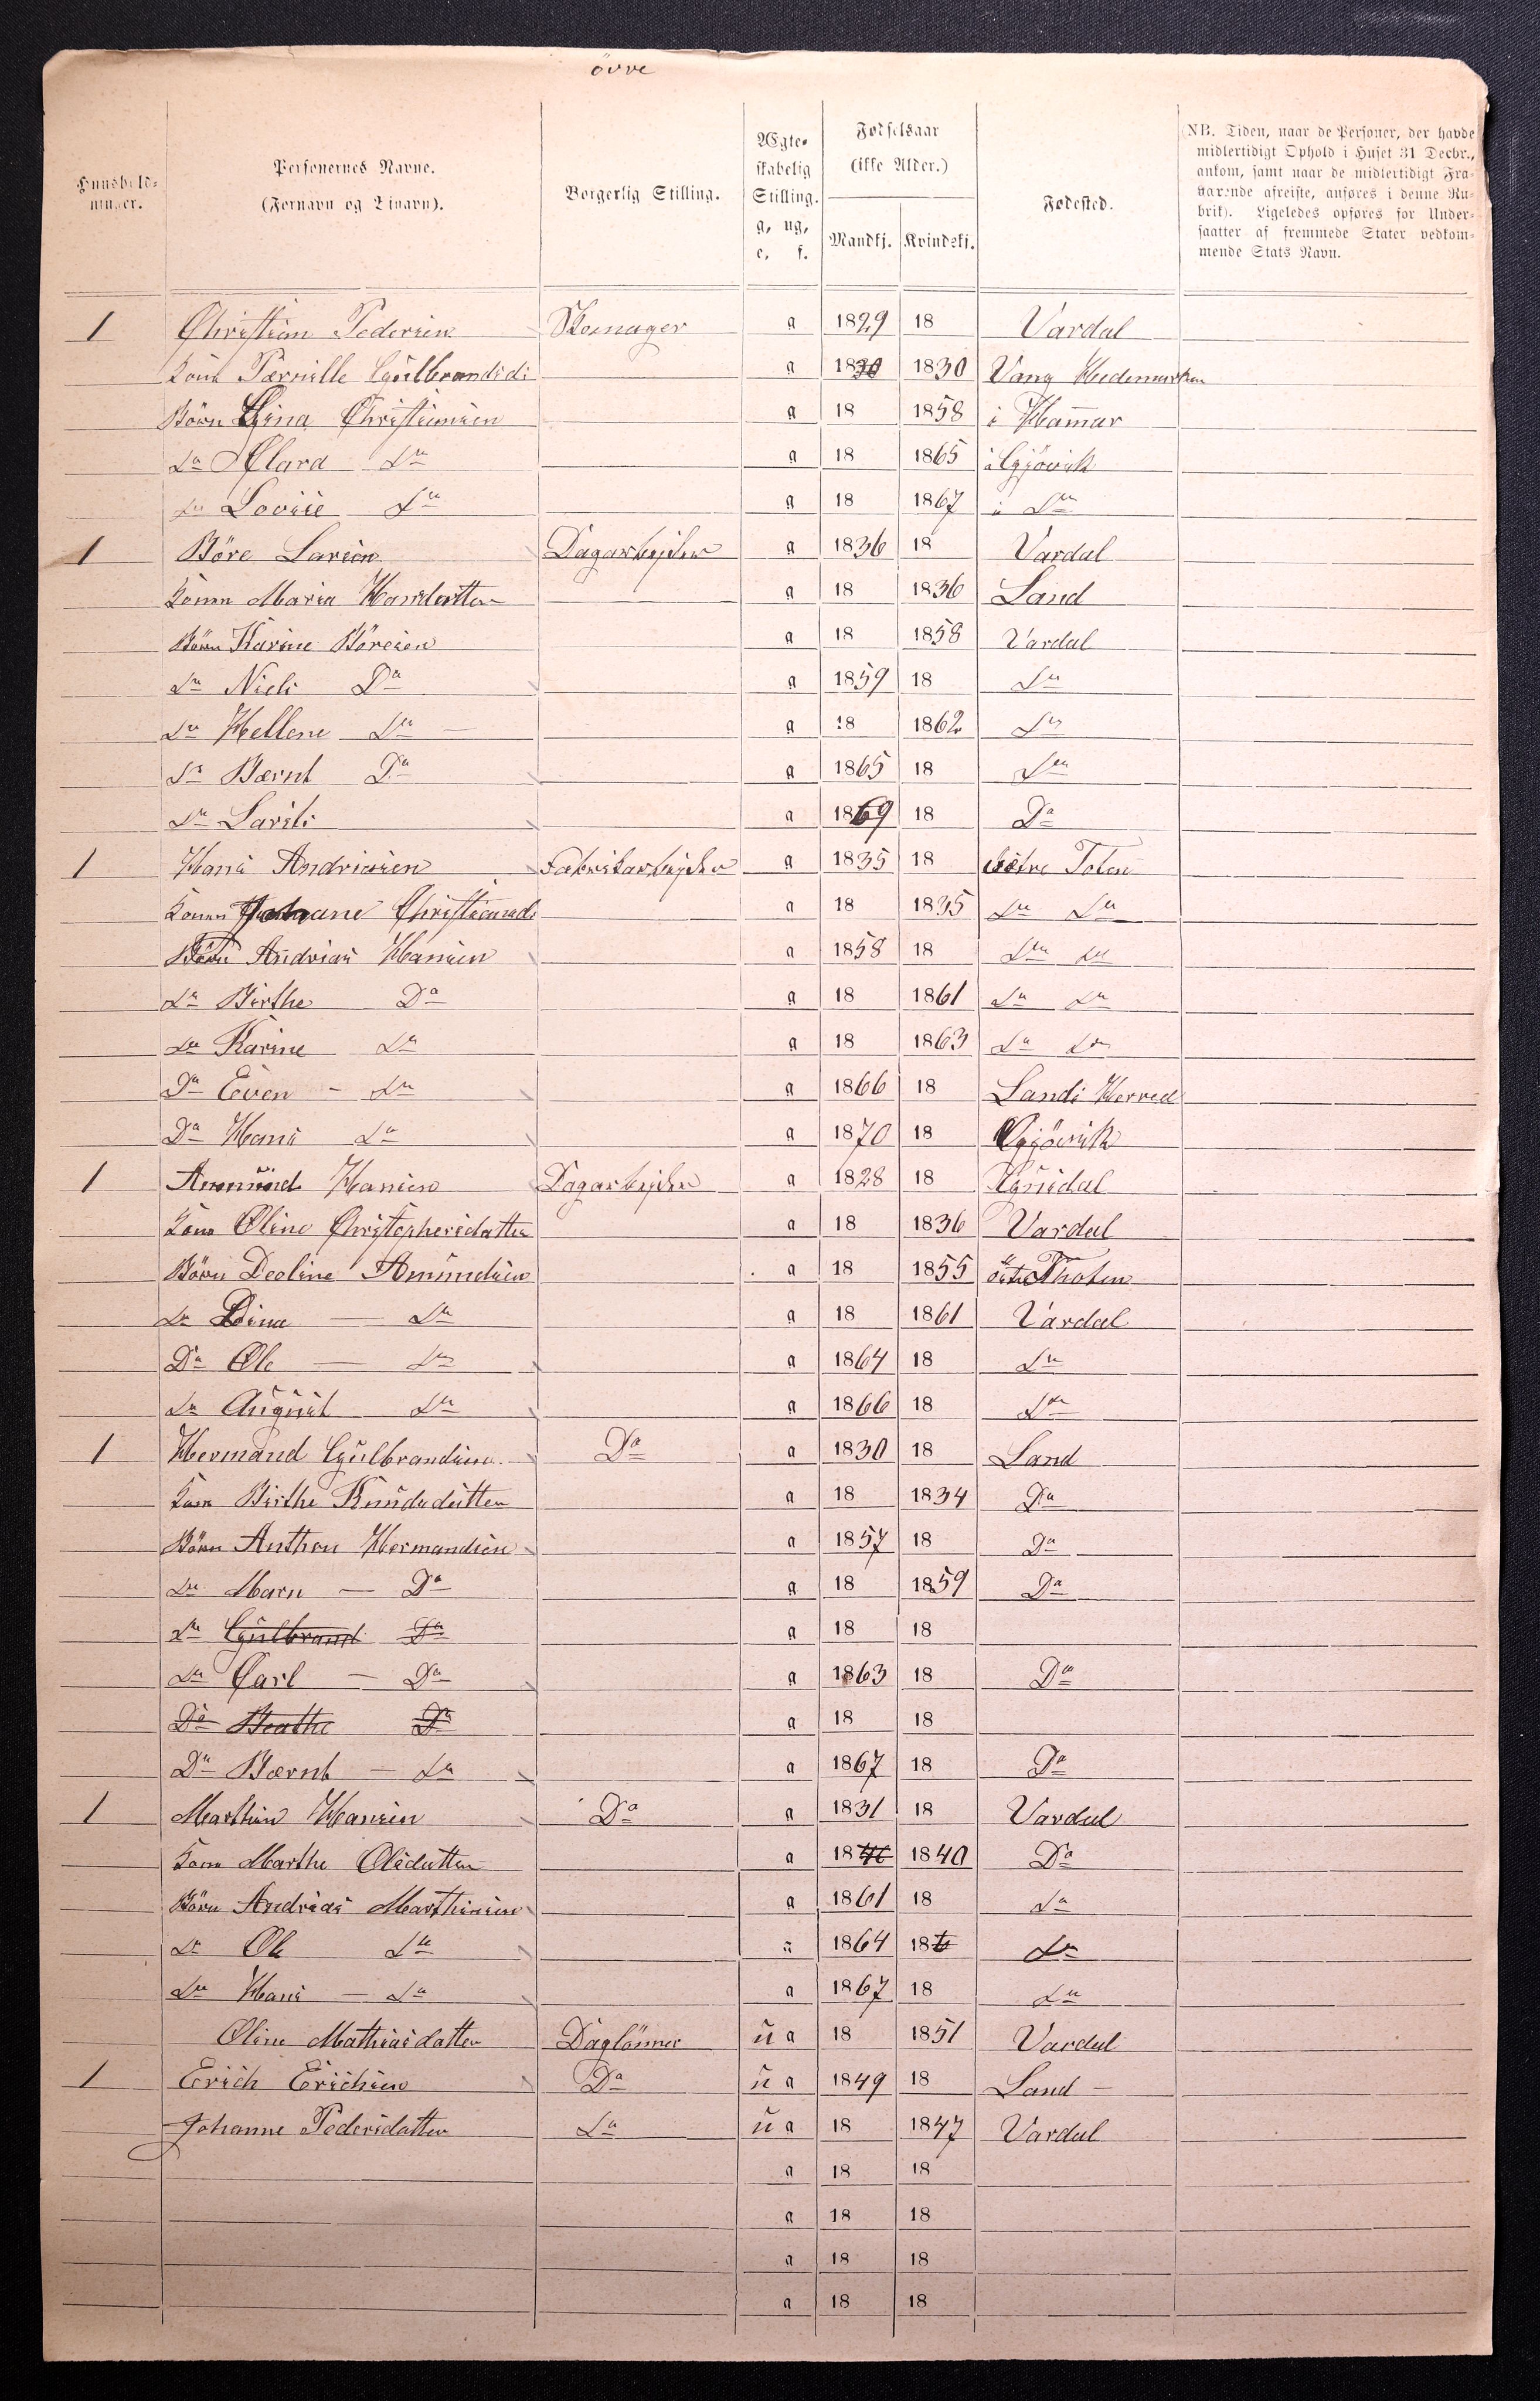 övre
Huusholdninger.
Personernes Navne.
(Fornavn og Tinavn).
Borgerlig Stilling.
Ægteskabelig Stilling.
g, ug, e, f.
Fødselsaar
(ikke Alder.)
Mandkj. Kvindekj.
Fødested.
(NB. Tiden, naar de Personer, der havde
midlertidigt Ophold i Huset 31 Decbr.,
ankom, samt naar de midlertidigt Fra-
værende afreiste, anføres i denne Ru-
brik). Ligeledes opføres for Under-
saatter af fremmede Stater vedkom-
mende Stats Navn.
1 Christian Pedersen Skomager g 1829 18 Vardal
Kone Pærnille Gulbrandsd: g 1830 1830 Vang Hedemarken
Börn Gina Christiansen g 18 1858 i Hamar
Do Clara Do g 18 1865 i Gjövik
Do Lovise Do g 18 1867 i Do
1 Böre Larsen Dagarbejder g 1836 18 Vardal
Konen Maria Hansdatter g 18 1836 Land
Börn Karine Böresen g 18 1858 Vardal
Do Niels Do g 1859 18 Do
Do Hellene Do g 18 1862 Do
Do Bærnt Do g 1865 18 Do
Do Laritz g 1869 18 Do
1 Hans Andriasen Fabrikarbejder g 1835 18 östre Toten
Konen Johane Christiansd: g 18 1835 Do Do
Börn Andrias Hansen g 1858 18 Do Do
Do Birthe Do g 18 1861 Do Do
Do Karine Do g 18 1863 Do Do
Do Even - Do g 1866 18 Lands Herred
Do Hans Do g 1870 18 Gjövik
1 Ammund Hansen Dagarbejder g 1828 18
Kone Oline Christophersdatter g 18 1836 Vardal
Börn Deoline Amundsen g 18 1855 östre Thoten
Do Dina — Do g 18 1861 Vardal
Do Ole — Do g 1864 18 Do
Do August Do g 1866 18 Do
1 Hermand Gulbrandsen Do g 1830 18 Land
Kone Birthe Knudsdatter g 18 1834 Do
Börn Anthon Hermandsen g 1857 18 Do
Do Marn — Do g 18 1859 Do
Do Gulbrand Do g 18 18
Do Carl — Do g 1863 18 Do
Do Beathe Do g 18 18
Do Bærnt — Do g 1867 18 Do
1 Marthin Hansen Do g 1831 18 Vardal
Kone Marthe Olsdatter g 1840 1840 Do
Börn Andrias Marthinsen g 1861 18 Do
Do Ole Do g 1864 18 Do
Do Hans — Do g 1867 18 Do
Oline Mathiasdatter Daglönner u g 18 1851 Vardal
1 Erich Erichsen Do u g 1849 18 Land -
Johanne Pedersdatter Do u g 18 1847 Vardal
g 18 18
g 18 18
g 18 18
g 18 18